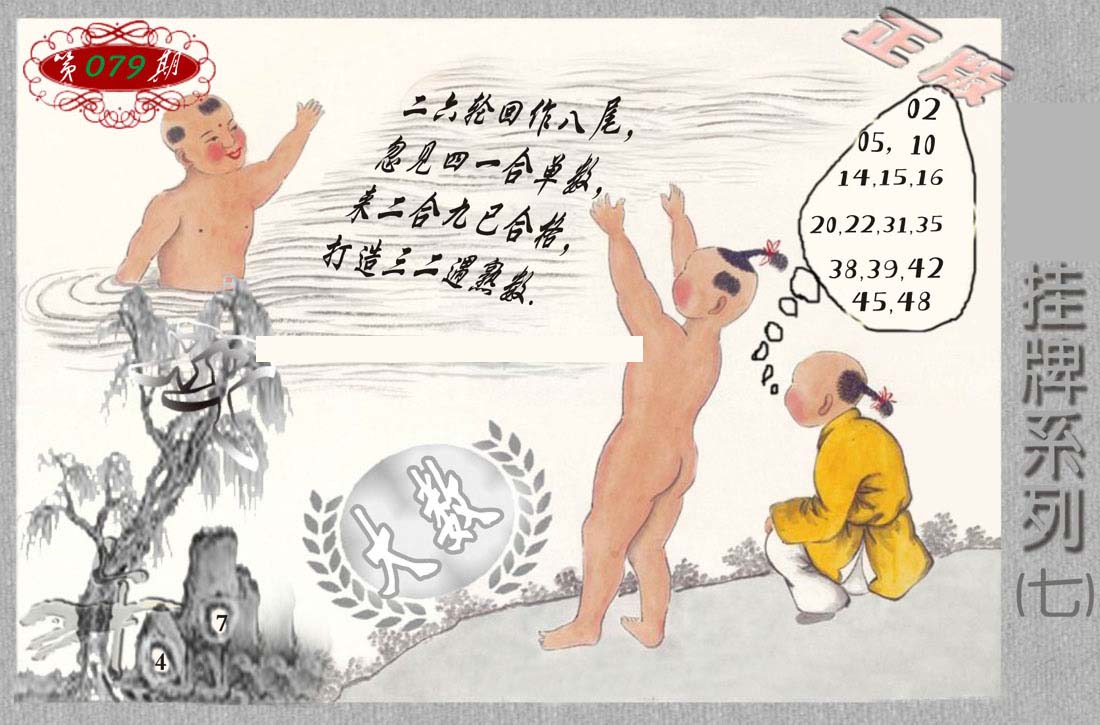 第079期
正版
二六轮回作八尾，
忽见四一合单数，
来二合九已合格，
打造三二遇熟数.
02
05, 10
14,15,16
20,22,31,35
38,39,42
45,48
挂牌系列(七)
大数
7
4